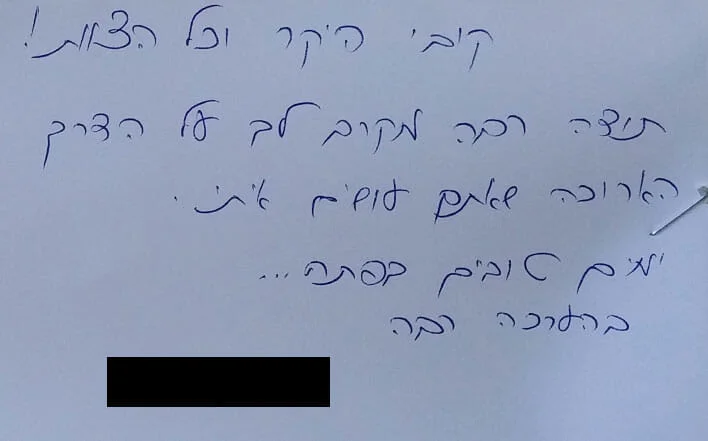 קובי היקר וכל הצוות!
תודה רבה מקרב לב על הדרך
הארוכה שאתם עושים איתי.
ימים טובים בפתח...
בהערכה רבה